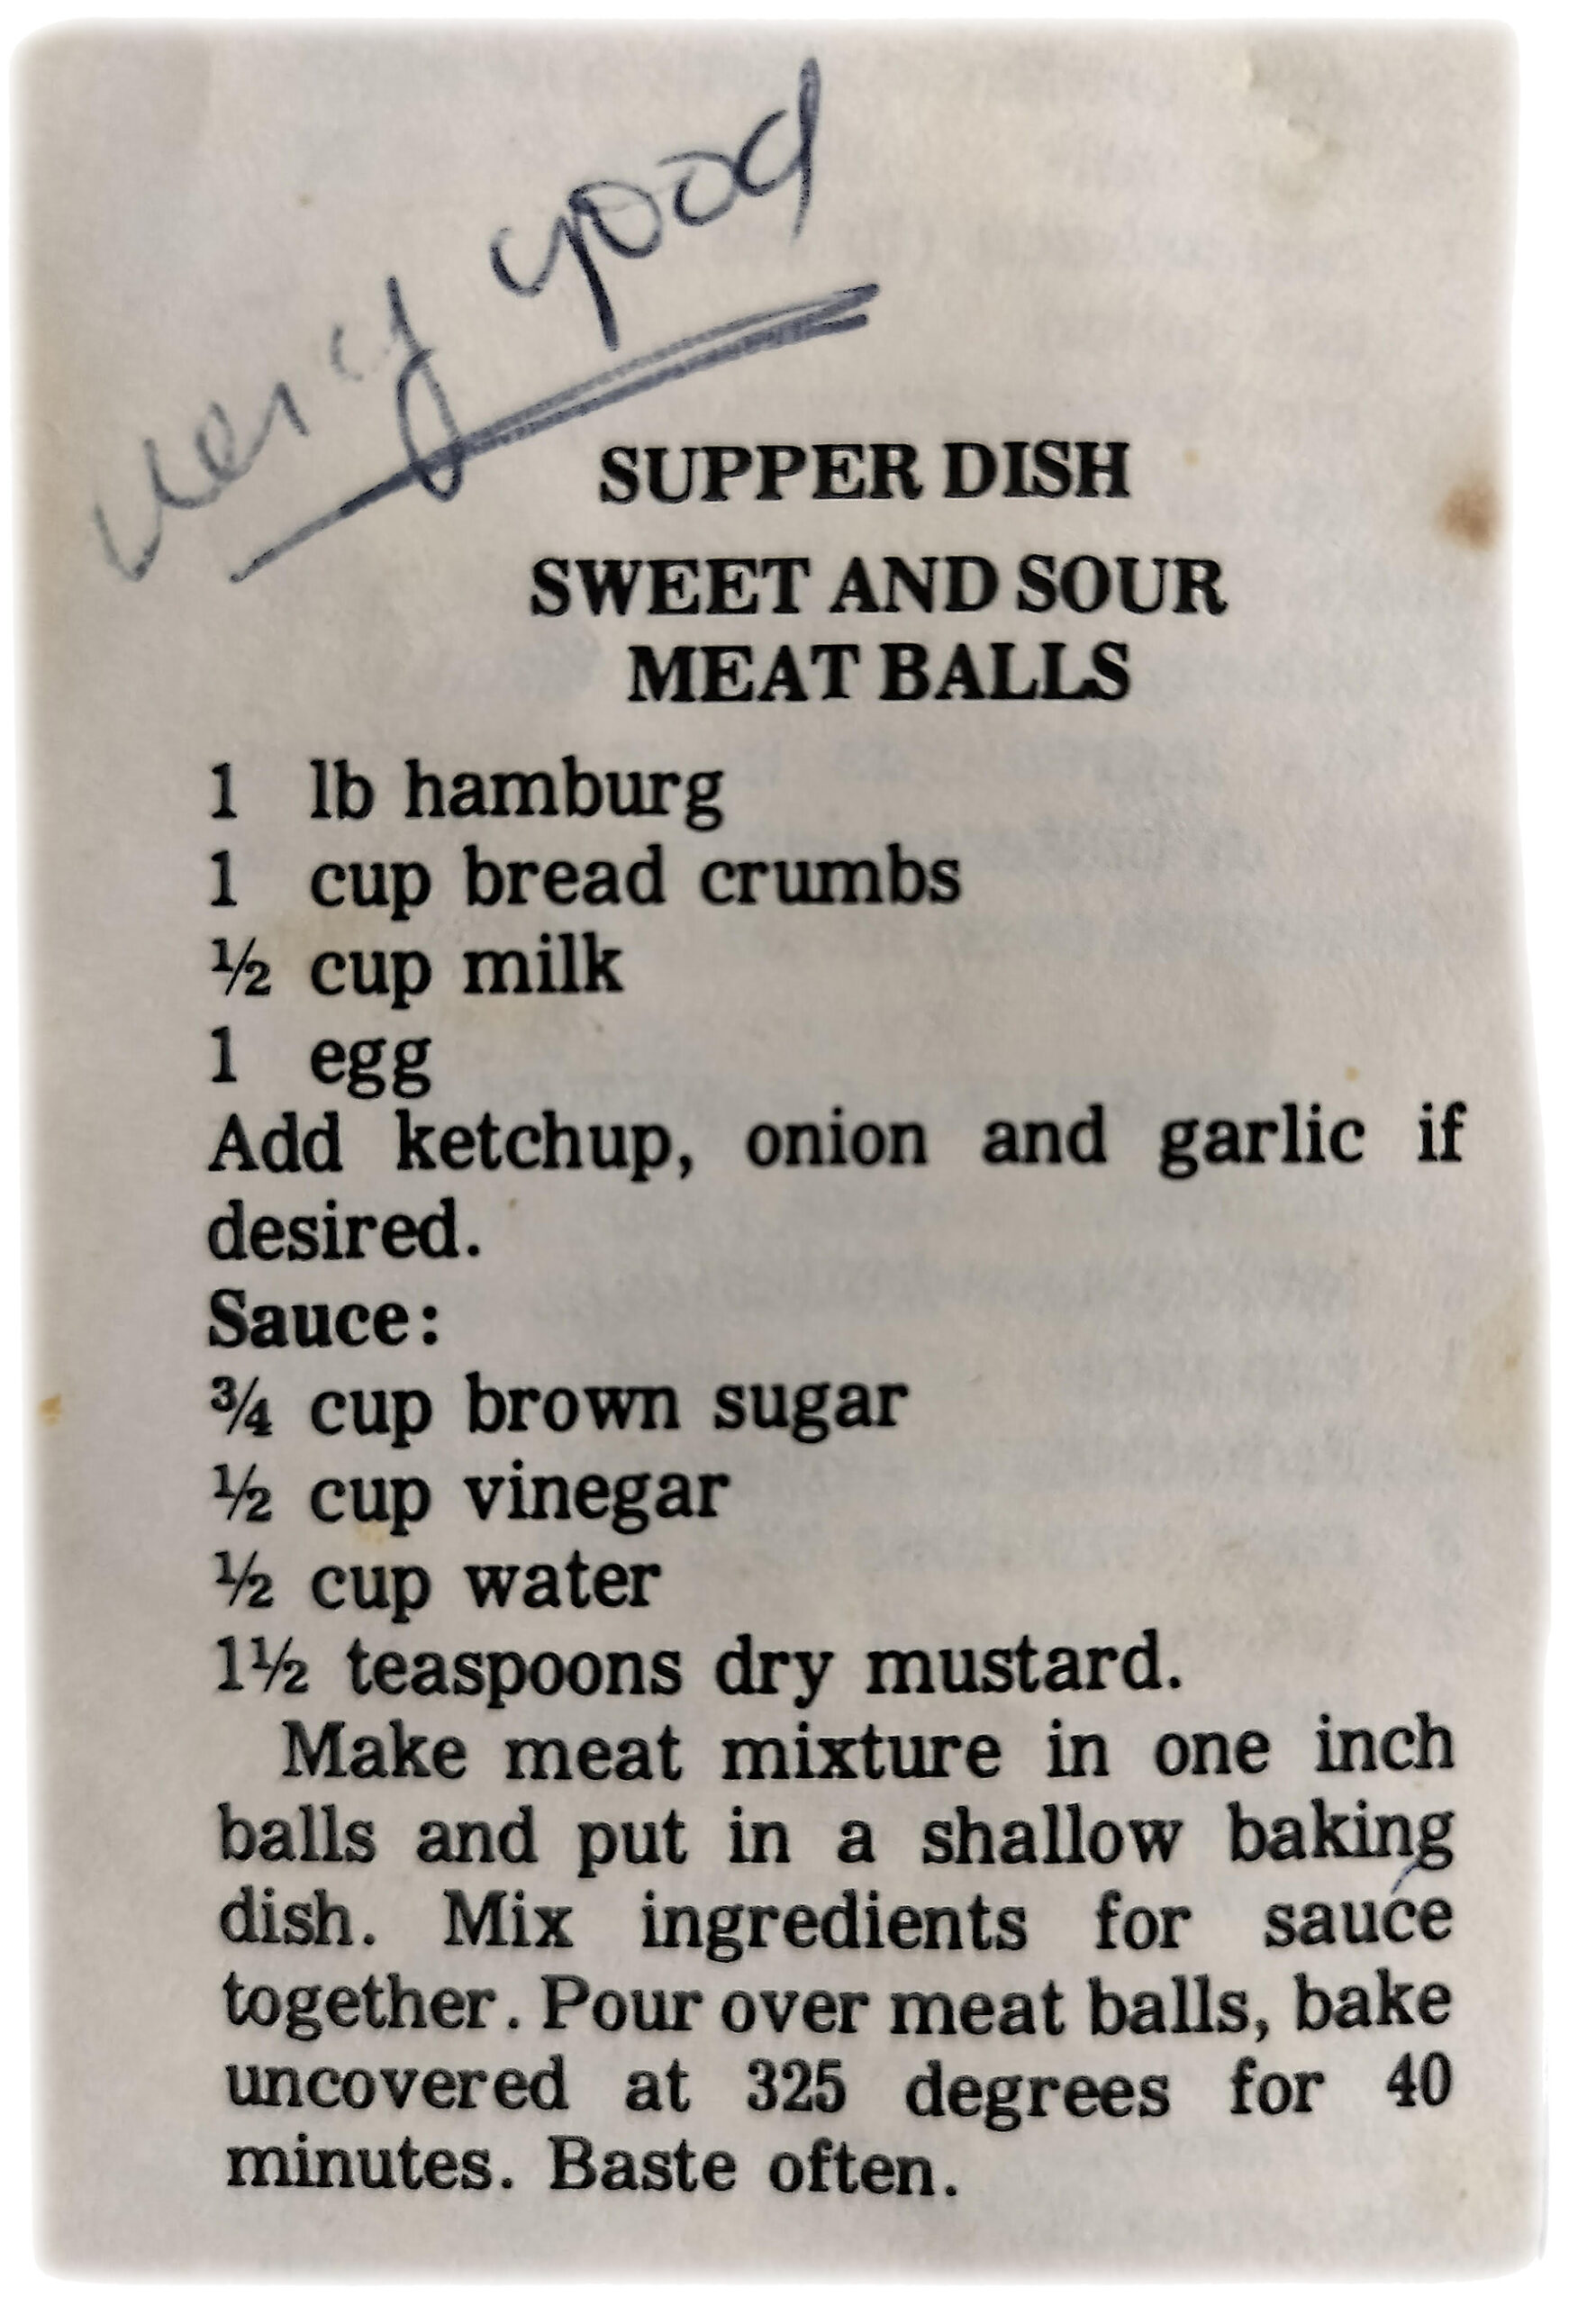 very good
SUPPER DISH
SWEET AND SOUR
MEAT BALLS
1 lb hamburg
1 cup bread crumbs
½ cup milk
1 egg
Add ketchup, onion and garlic if
desired.
Sauce:
¾ cup brown sugar
½ cup vinegar
½ cup water
1½ teaspoons dry mustard.
Make meat mixture in one inch
balls and put in a shallow baking
dish. Mix ingredients for sauce
together. Pour over meat balls, bake
uncovered at 325 degrees for 40
minutes. Baste often.